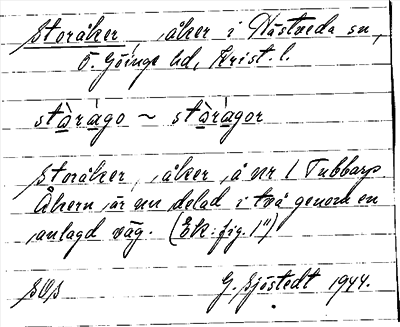 Storåker, åker i Hästveda sn,
Ö. Göinge hd, Krist. l.
stàrágo ~ stàrágor
Storåker, åker å nr 1 Tubbarp.
Åkern är nu delad i två genom en
anlagd väg. (Ek: fig. 1")
G. Sjöstedt 1944.